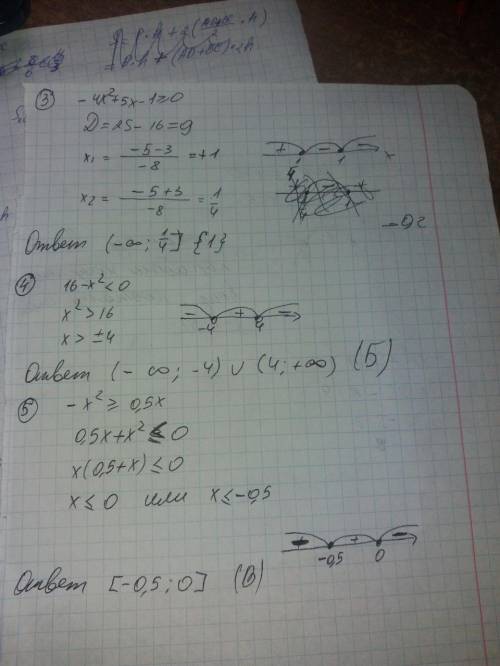 ③ -4x²+5x-1=0
D=25-16=9
x₁ = (-5-3)/(-8) = +1
+ 1/4 - 1 - x
x₂ = (-5+3)/(-8) = 1/4
Ответ (-∞; 1/4] {1}
④ 16-x²<0
x²>16
x>±4
- -4 + 4 -
Ответ (-∞; -4) ∪ (4; +∞) (Б)
⑤ -x² ≥ 0,5x
0,5x+x² ≤ 0
x(0,5+x) ≤ 0
x ≤ 0 или x ≤ -0,5
-0,5 + 0 -
Ответ [-0,5; 0] (В)